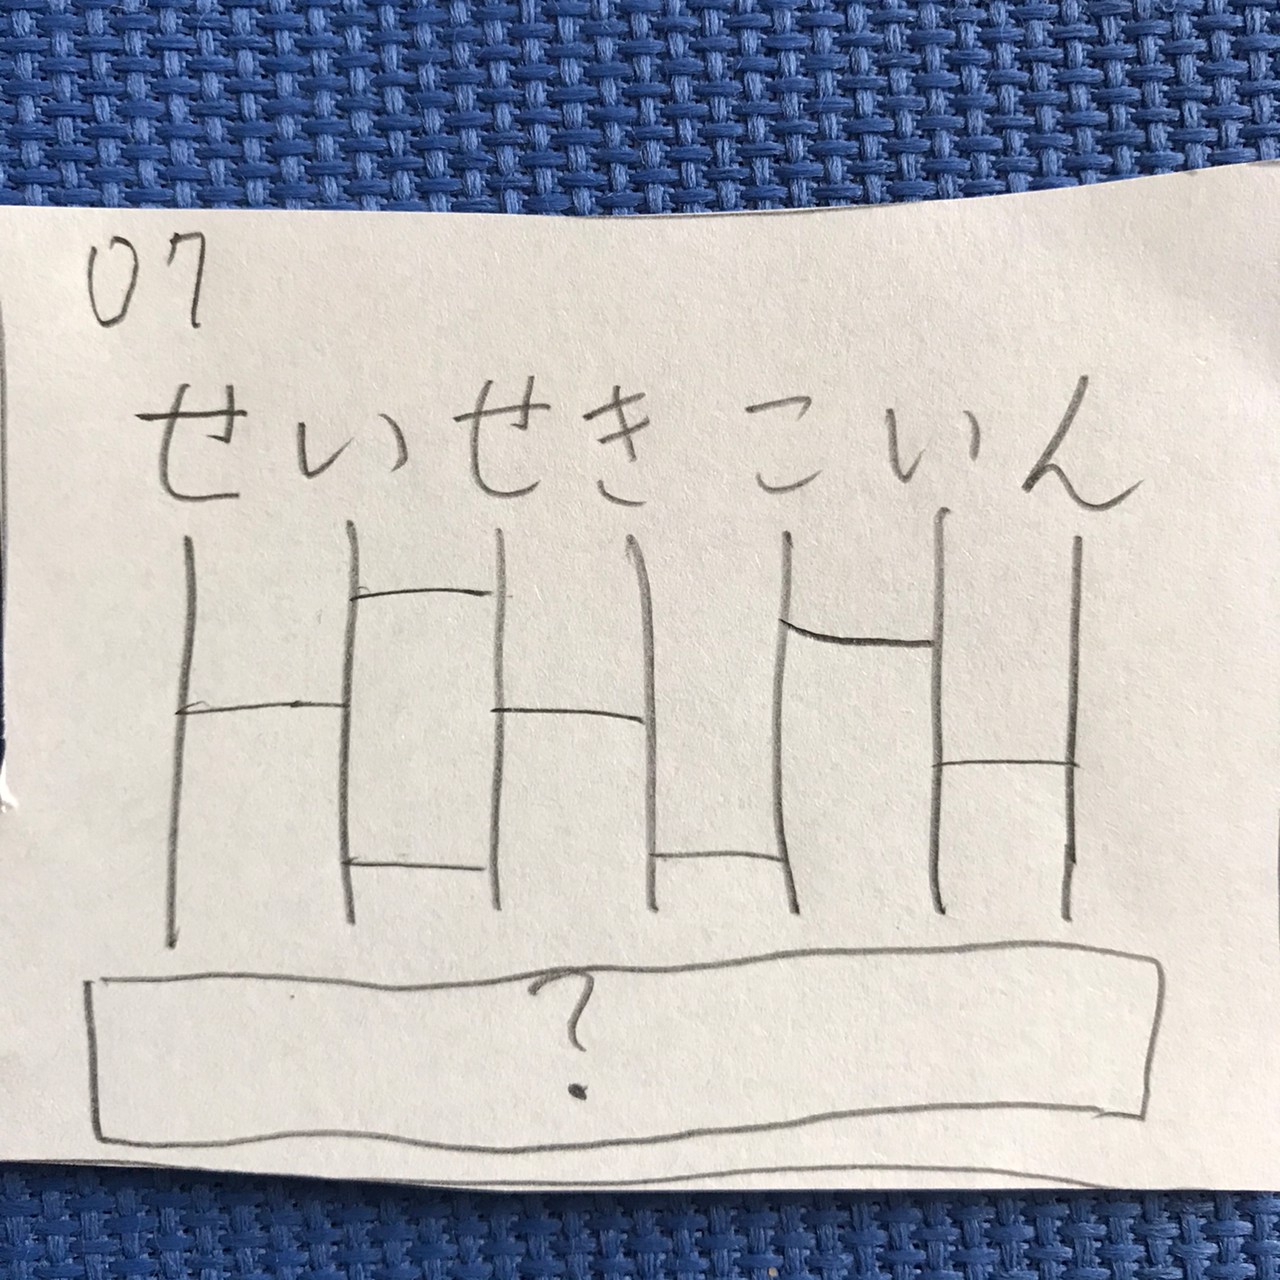 07
せいせきこいん
?